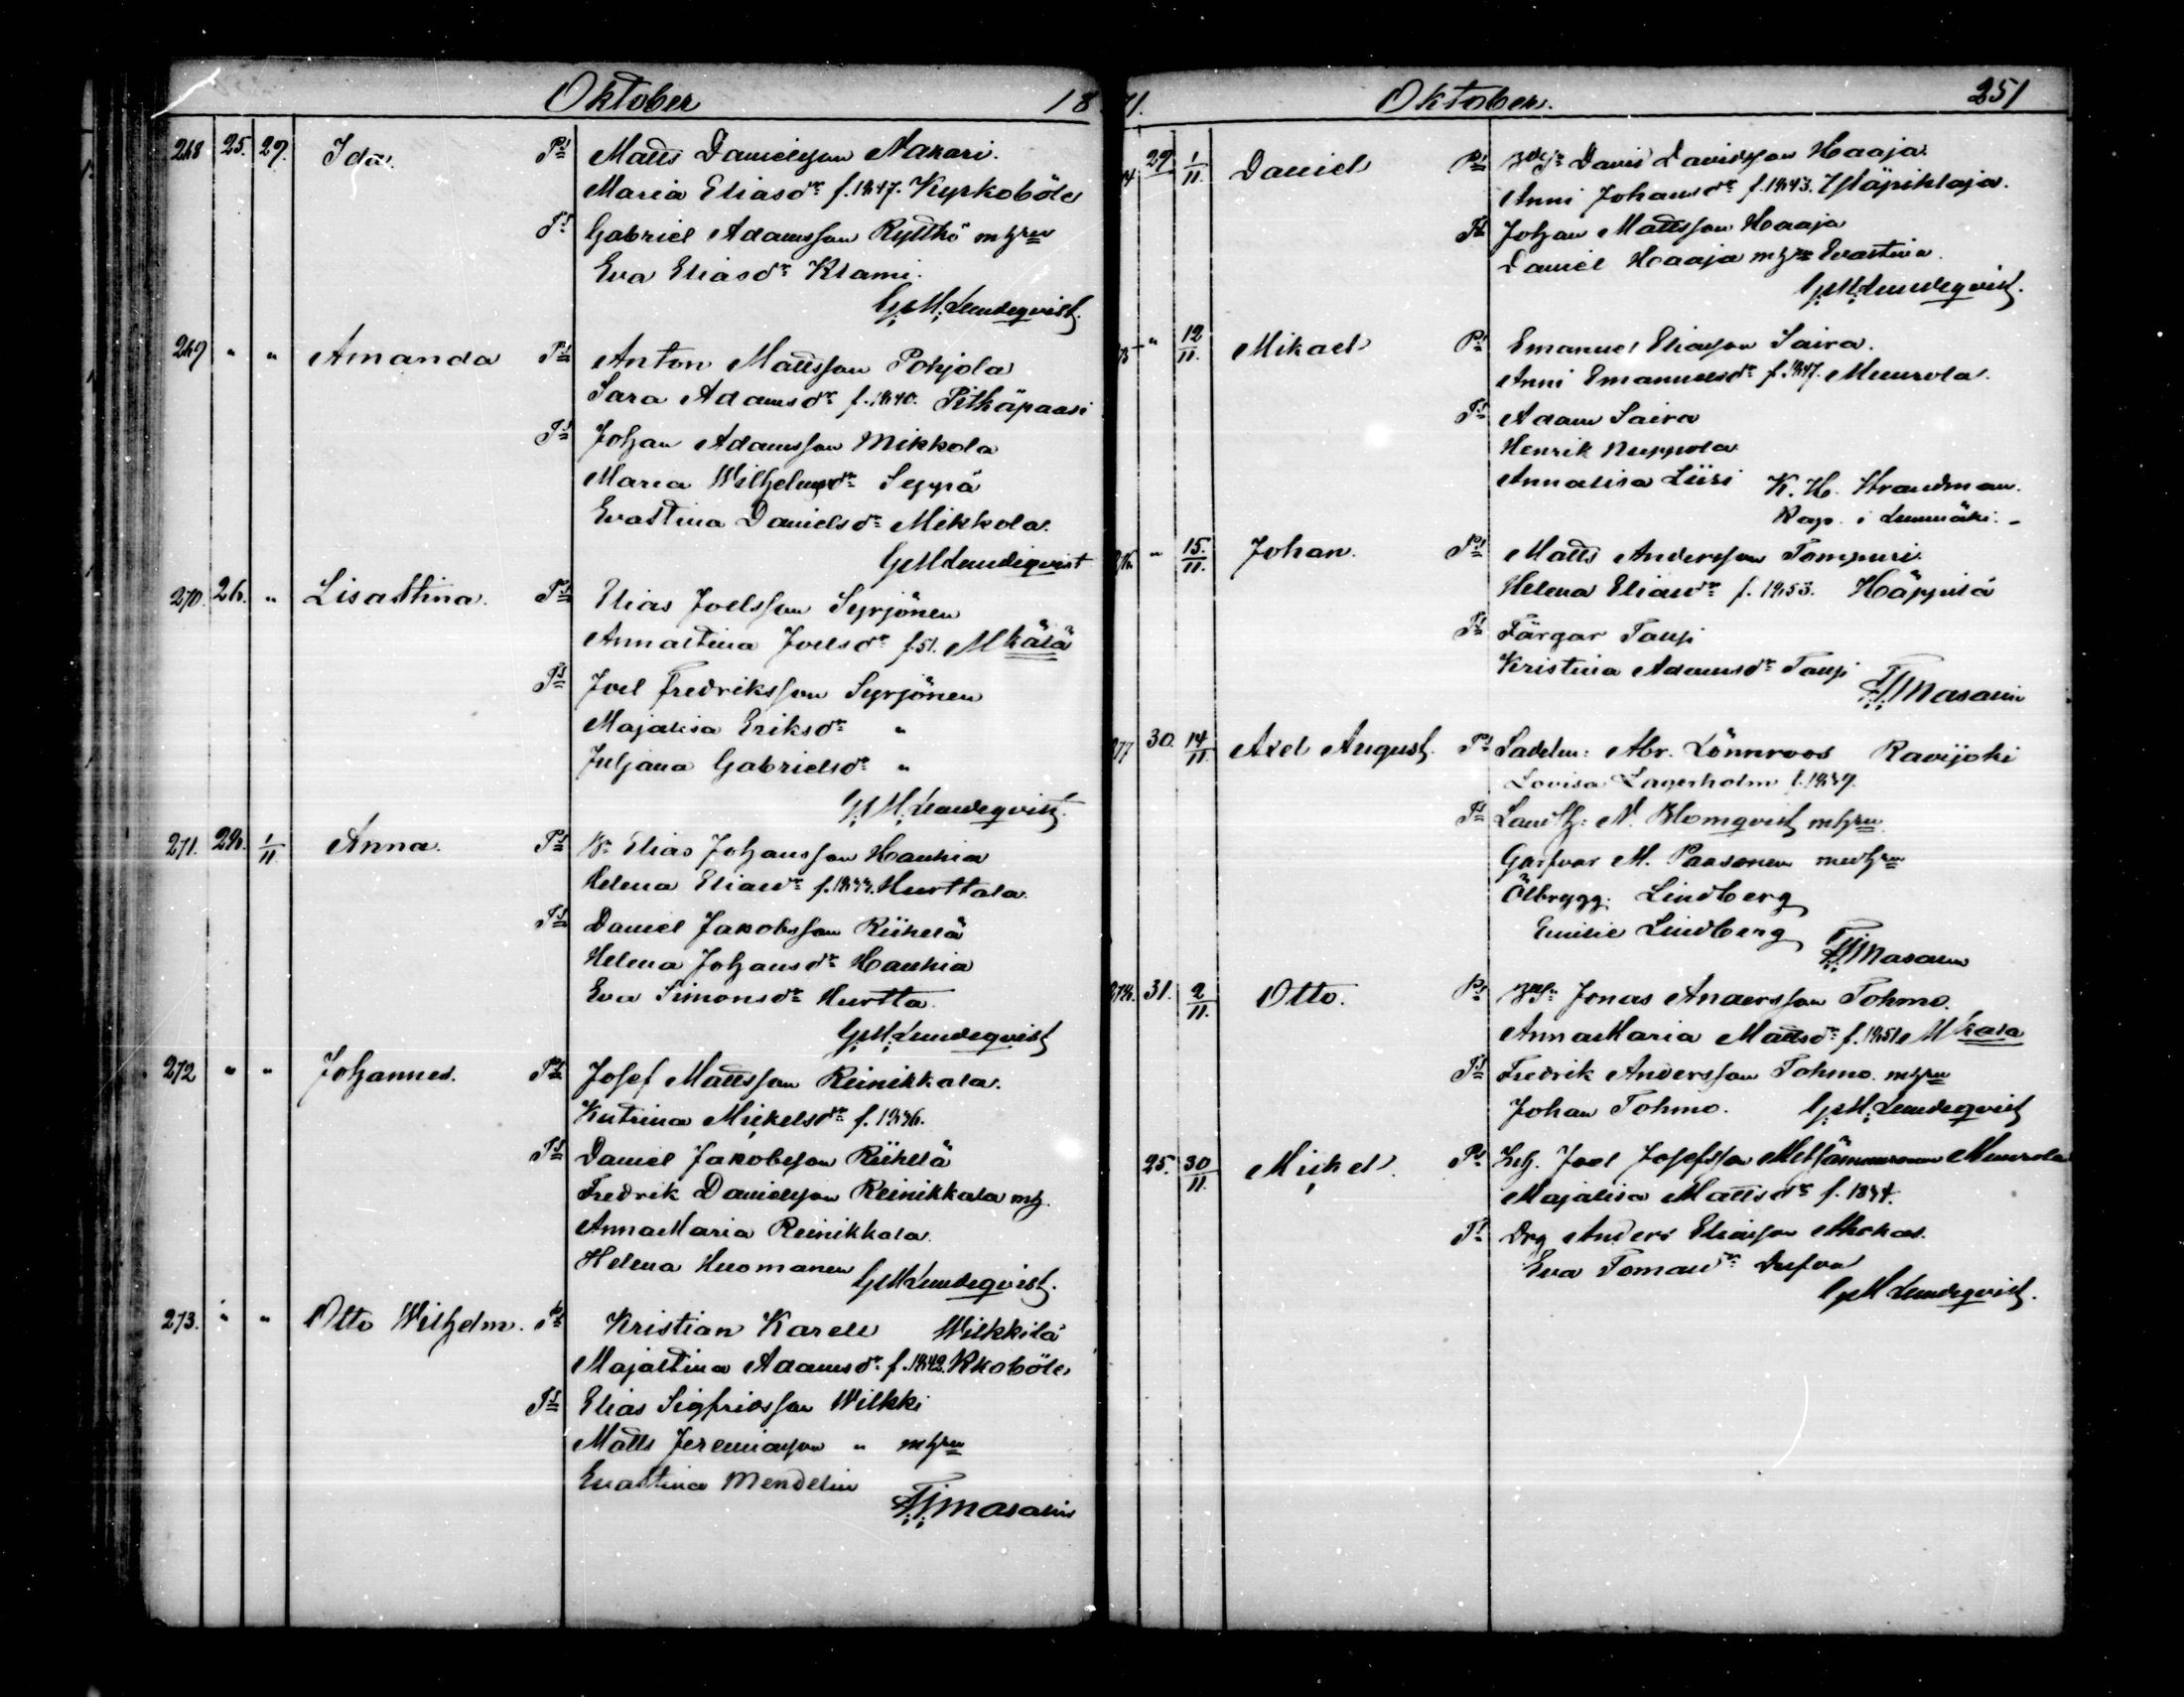 Oktober 18
268 25. 29. Ida. Pˢ Matts Danielsson Nakari.
Maria Eliasdr f. 1847. Kyrkoböle
Tˢ Gabriel Adamsson Ryttkö mhru
Eva Eliasdr Klami.
G. M. Lundeqvist.
269 " " Amanda Pˢ Anton Mattsson Pohjola
Sara Adamsdr f. 1840. Pitkäpaasi
Tˢ Johan Adamsson Mikkola
Maria Wilhelmsdr Seppä
Evastina Danielsdr Mikkola.
G M Lundeqvist
270. 26. " Lisastina. Pˢ Elias Joelsson Syrjönen
Annastina Joelsdr f. 51. Mkälä
Tˢ Joel Fredriksson Syrjönen
Majalisa Eriksdr "
Juljana Gabrielsdr "
G. M. Lundeqvist.
271. 28. 1/11 Anna. Pˢ Bn Elias Johansson Hanhia
Helena Eliasdr f. Hurttala.
Tˢ Daniel Jakobsson Riihelä
Helena Johansdr Hanhia
Eva Simonsdr Hurtta.
G. M. Lundeqvist
272 " " Johannes. Pˢ Josef Mattsson Reinikkala.
Katrina Mickelsdr f. 1836.
Tˢ Daniel Jakobsson Riihelä
Fredrik Danielsson Reinikkala mh.
AnnaMaria Reinikkala.
Helena Huomanen G M Lundeqvist.
273. " " Otto Wilhelm. Pˢ Kristian Karell Wilkkilä
Majastina Adamsdr f. 1842. Kkoböle
Tˢ Elias Sigfridsson Wilkki
Matts Jeremiasson " mhru
Evastina Mendelin
F. J. Masalin
71. Oktober. 251
74. 29. 1/11. Daniel Pˢ David Davidsson Haaja.
Anni Johansdr f. 1843. Yläpihlaja.
Tˢ Johan Mattsson Haaja
Daniel Haaja mhru Evastina.
G. M. Lundeqvist.
75 " 12/11. Mikael Pˢ Emanuel Eliasson Saira.
Anni Emanuelsdr f. 1847. Muurola.
Tˢ Adam Saira
Henrik Nuppola
Annalisa Liisi K. H. Strandman.
Kap. i Lummäki. -
276. " 15./11. Johan. Pˢ Matts Andersson Tompuri.
Helena Eliasdr f. 1853. Häppilä
Tˢ Färgar Tausi
Kristina Adamsdr Tausi
F. J. Masalin
277 30. 14/11. Axel August. Pˢ Sadelm: Abr. Lönnroos Ravijoki
Lovisa Lagerholm f. 1839.
Tˢ Landth: N. Blomqvist mhru.
Garfvar M. Paasonen medhru
Ölbrygg. Lindberg
Emilie Lindberg
F. J. Masalin
278. 31. 2/11. Otto. Pˢ Jonas Andersson Tohmo.
AnnaMaria Mattsdr f. 1851. Mkala
Tˢ Fredrik Andersson Tohmo. mhru
Johan Tohmo. G. M. Lundeqvist
25. 30/11. Mickel. Pˢ Inh. Joel Josefsson Muurola
Majalisa Mattsdr f. 1834.
Tˢ Drg Anders Eliasson Ahokas.
Eva Tomasdr
G M Lundeqvist.